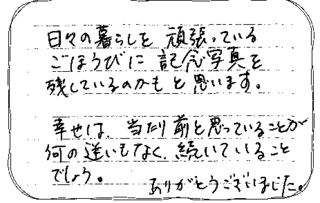 日々の暮らしを 頑張っている
ごほうびに 記念写真を
残しているのかもと思います。
幸せは、当たり前と思っていることが
何の迷いもなく、続いていること
でしょう。
ありがとうございました。